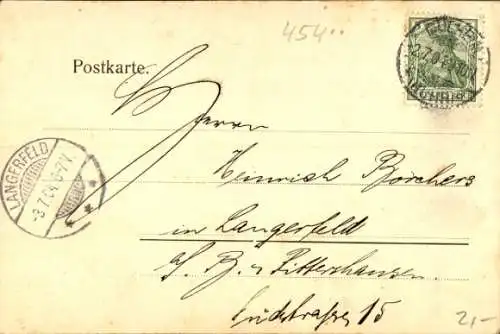 454..
Postkarte.
Herrn
Heinrich Borchers
in Langerfeld
Rittershausen
15
LANGERFELD
-3.7.04. 6-7V.
21,-